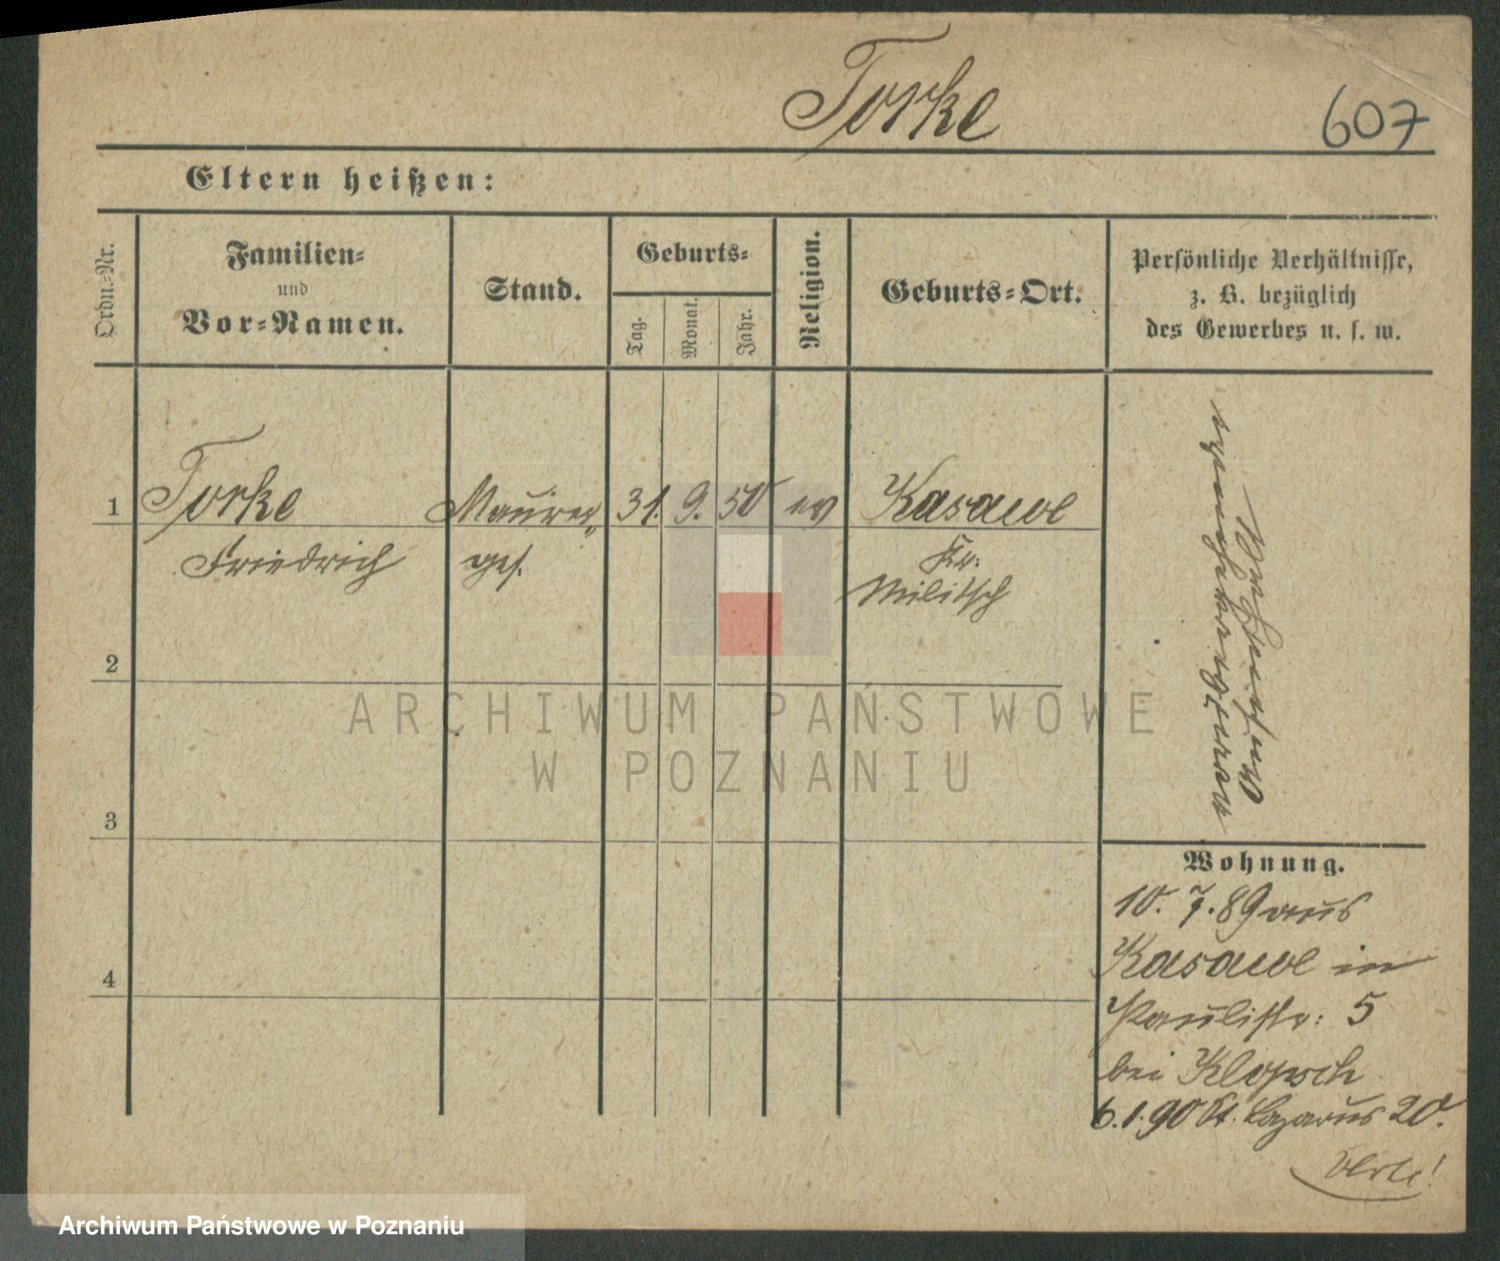 Torke
607
Eltern heißen:
Ordn.-Nr.
Familien-
und
Vor-Namen.
Stand.
Geburts-
Tag.
Monat.
Jahr.
Religion.
Geburts-Ort.
Persönliche Verhältnisse,
z. B. bezüglich
des Gewerbes u. s. w.
1
Torke
Maurer
31. 9. 50
ev
Kasawe
Friedrich
ges.
Kr.
Militsch
2
3
4
Wohnung.
10. 7. 89 aus
Kasawe in
Paulistr: 5
bei Klopsch
6.1.90 St. Lazarus 20.
Verte!
ARCHIWUM PAŃSTWOWE
W POZNANIU
Archiwum Państwowe w Poznaniu